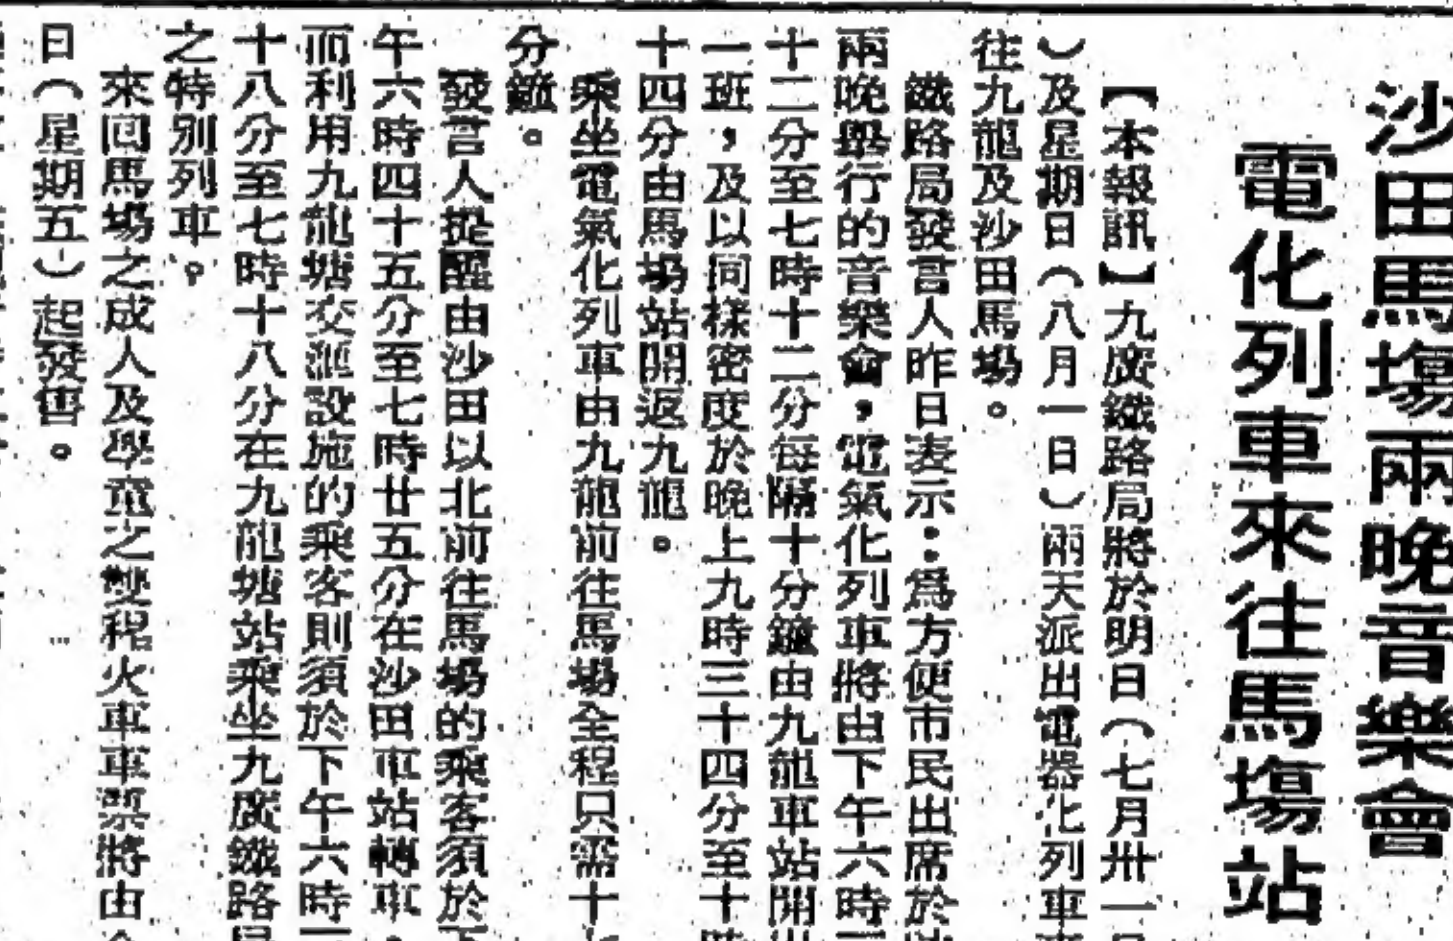 沙田馬塲兩晚音樂會
電化列車來往馬塲站
【本報訊】九廣鐵路局將於明日（七月卅一日
）及星期日（八月一日）兩天派出電器化列車來
往九龍及沙田馬塲。
鐵路局發言人昨日表示：爲方便市民出席於
兩晚舉行的音樂會，電氣化列車將由下午六時
十二分至七時十二分每隔十分鐘由九龍車站開出
一班，及以同樣密度於晚上九時三十四分至十時
十四分由馬塲站開返九龍。
乘坐電氣化列車由九龍前往馬塲全程只需十
分鐘。
發言人提醒由沙田以北前往馬塲的乘客須於下
午六時四十五分至七時廿五分在沙田車站轉車，
而利用九龍塘交滙設施的乘客則須於下午六時
十八分至七時十八分在九龍塘站乘坐九廣鐵路局
之特別列車。
來回馬塲之成人及學童之雙程火車車票將由今
日（星期五）起發售。